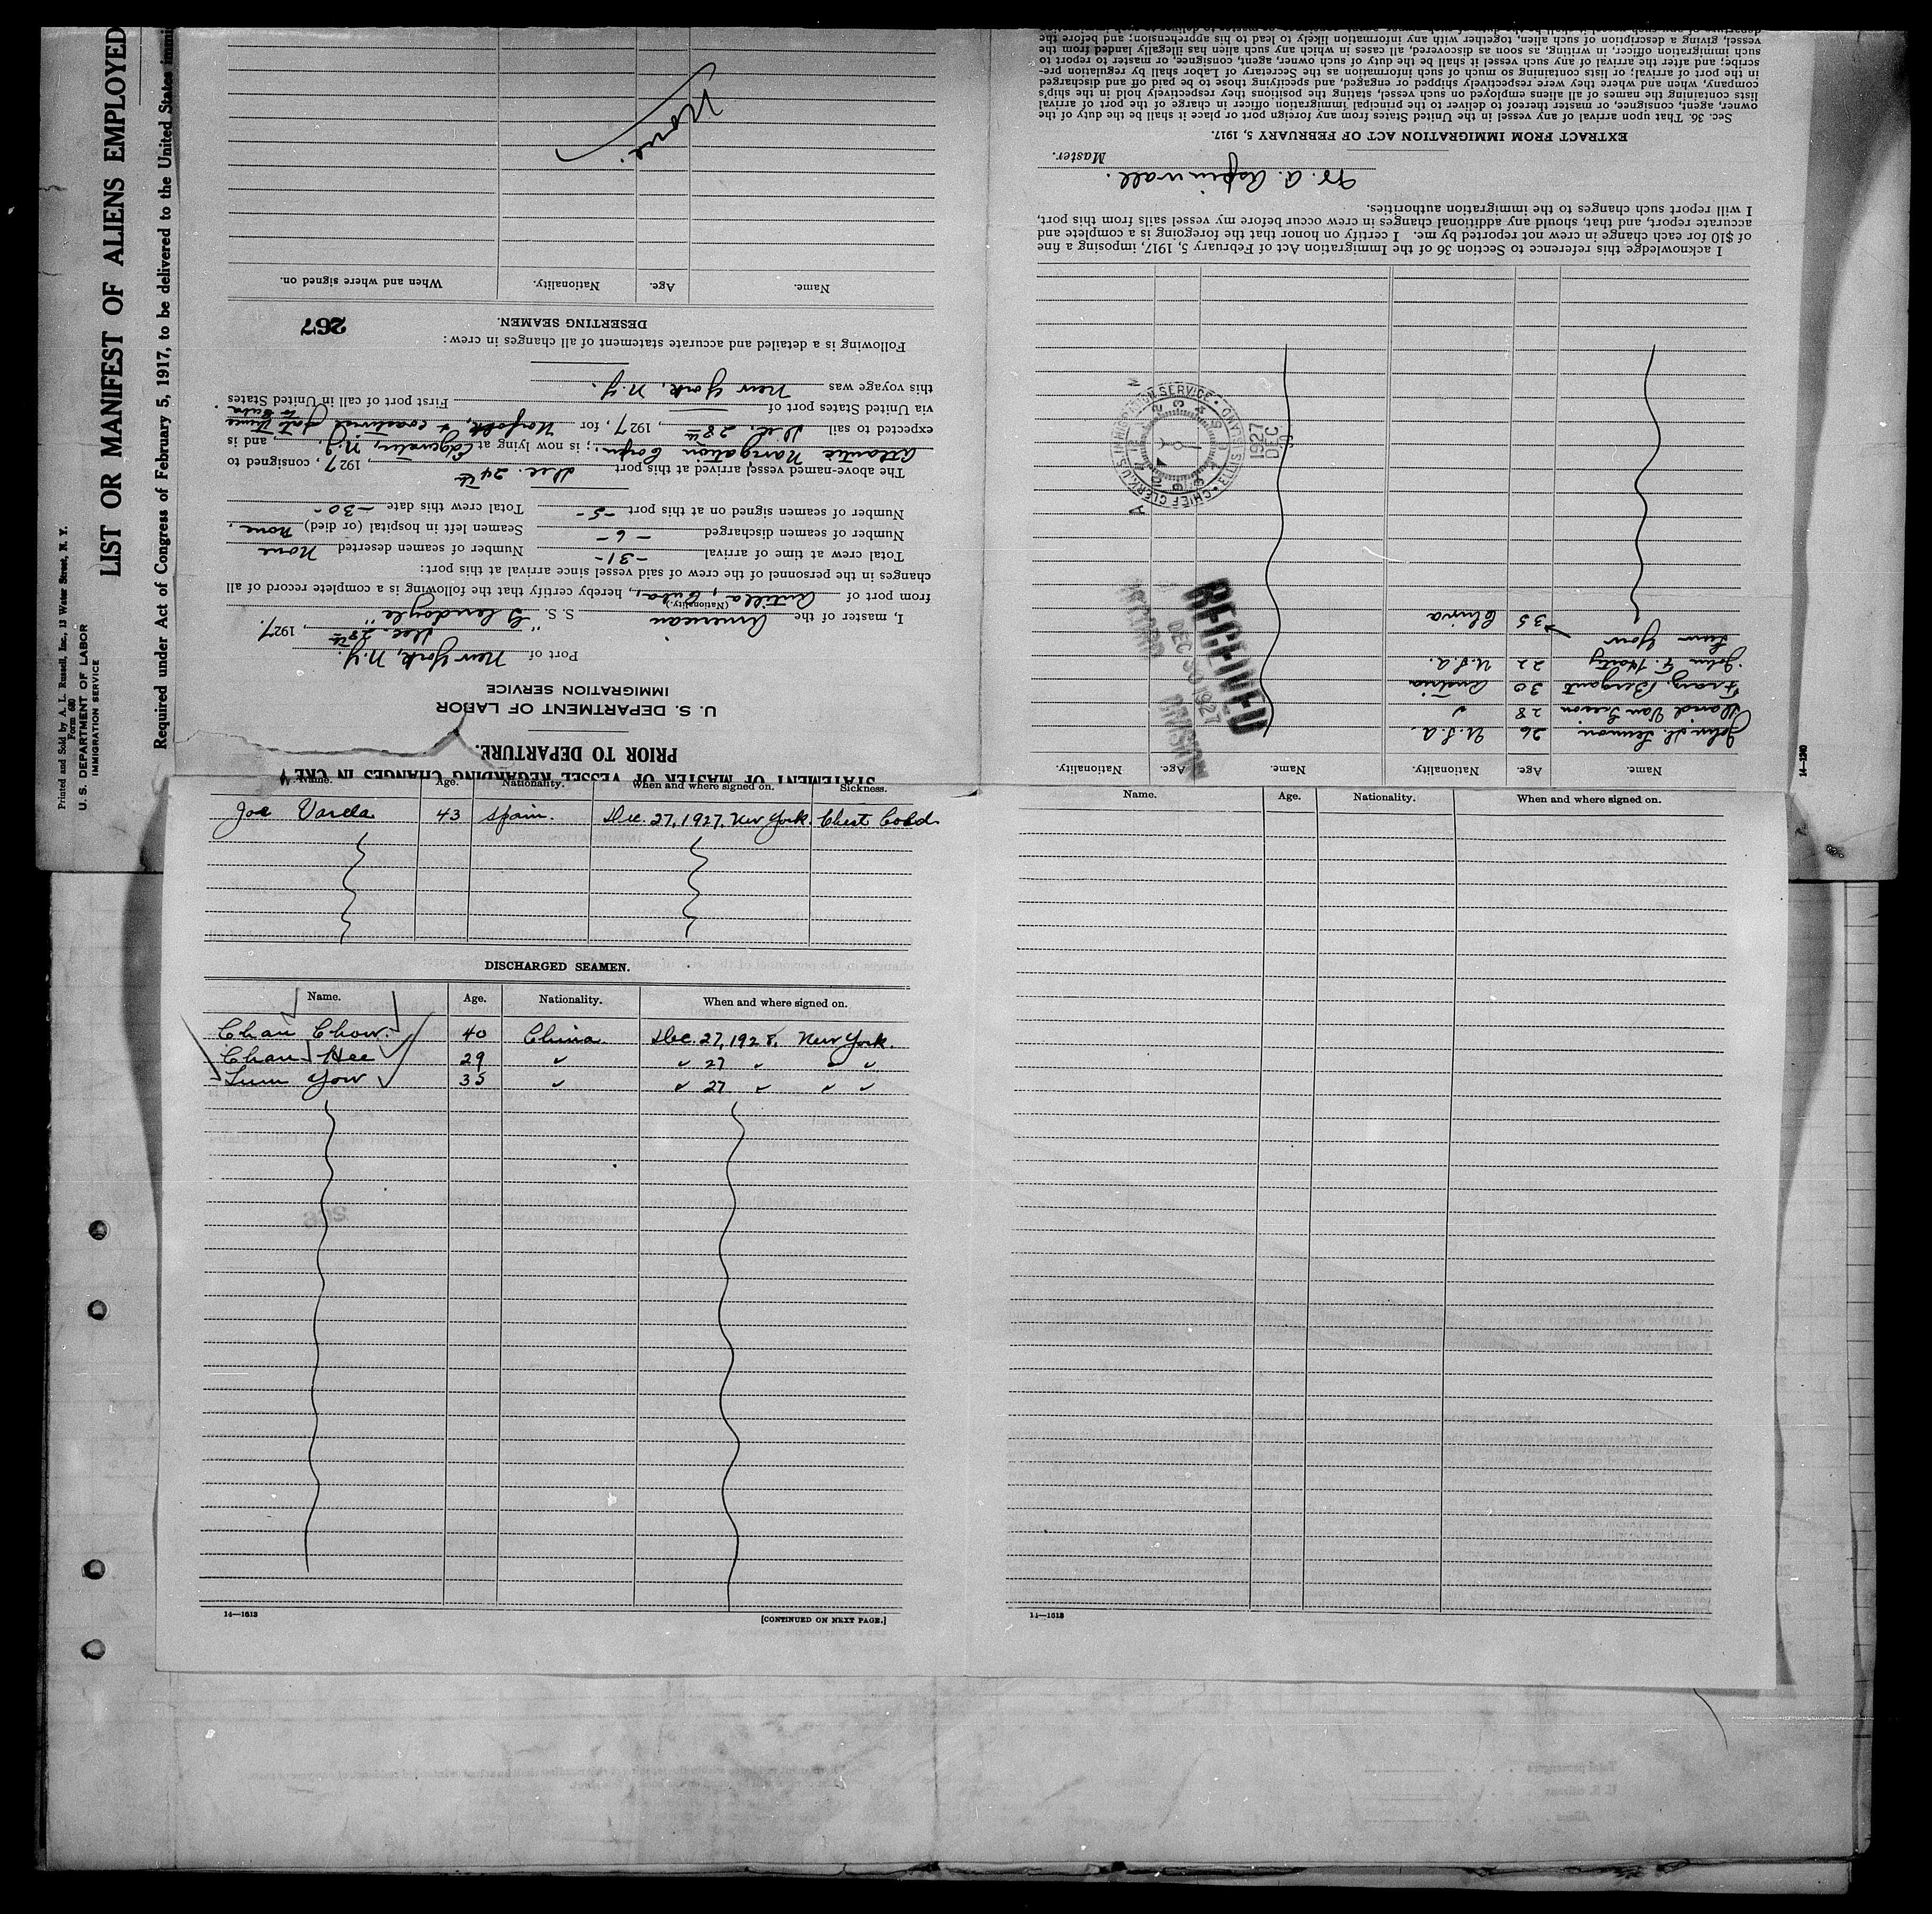 Printed and Sold by A. L. Russell, Inc., 13 Water Street, N. Y.
Form 680
U. S. DEPARTMENT OF LABOR
IMMIGRATION SERVICE
LIST OR MANIFEST OF ALIENS EMPLOYED
Required under Act of Congress of February 5, 1917, to be delivered to the United States immi
STATEMENT OF MASTER OF VESSEL REGARDING CHANGES IN CREW
PRIOR TO DEPARTURE.
U. S. DEPARTMENT OF LABOR
IMMIGRATION SERVICE
Port of New York, N.Y.
Dec. 28th, 1927.
I, master of the American S. S. "Glendoyle"
(Nationality.)
from port of Antilla, Cuba, hereby certify that the following is a complete record of all
changes in the personnel of the crew of said vessel since arrival at this port:
Total crew at time of arrival -31- Number of seamen deserted None
Number of seamen discharged -6- Seamen left in hospital (or died) None.
Number of seamen signed on at this port -5- Total crew this date -30-
The above-named vessel arrived at this port Dec. 24th, 1927, consigned to
Atlantic Navigation Corpn.; is now lying at Edgewater, N.J., and is
expected to sail Dec. 28th, 1927, for Norfolk, & coastwise
via United States port of First port of call in United States
this voyage was New York, N.Y.
Following is a detailed and accurate statement of all changes in crew:
DESERTING SEAMEN.
267
Name. Age. Nationality. When and where signed on.
None.
Name. Age. Nationality. Name. Age. Nationality.
John H. Lennon 26 U.S.A.
David Van Seeson 28 "
Franz Bergant 30 Austria
John F. Haity 22 U.S.A.
Lum Yow 35 China
RECEIVED
DEC 30 1927
RECORD DIVISION
CHIEF CLERK, U.S. IMMIGRATION SERVICE • ELLIS ISLAND
1927
DEC
I acknowledge this reference to Section 36 of the Immigration Act of February 5, 1917, imposing a fine
of $10 for each change in crew not reported by me. I certify on honor that the foregoing is a complete and
accurate report, and that, should any additional changes in crew occur before my vessel sails from this port,
I will report such changes to the immigration authorities.
W. A. Aspinwall.
Master.
EXTRACT FROM IMMIGRATION ACT OF FEBRUARY 5, 1917.
Sec. 36. That upon arrival of any vessel in the United States from any foreign port or place it shall be the duty of the
owner, agent, consignee, or master thereof to deliver to the principal immigration officer in charge of the port of arrival
lists containing the names of all aliens employed on such vessel, stating the positions they respectively hold in the ship's
company, when and where they were respectively shipped or engaged, and specifying those to be paid off and discharged
in the port of arrival; or lists containing so much of such information as the Secretary of Labor shall by regulation pre-
scribe; and after the arrival of any such vessel it shall be the duty of such owner, agent, consignee, or master to report to
such immigration officer, in writing, as soon as discovered, all cases in which any such alien has illegally landed from the
vessel, giving a description of such alien, together with any information likely to lead to his apprehension; and before the
14—1240
Name. Age. Nationality. When and where signed on. Sickness.
Joe Varela 43 Spain. Dec. 27, 1927, New York. Chest Cold
DISCHARGED SEAMEN.
Name. Age. Nationality. When and where signed on.
Chan Chow. 40 China. Dec. 27, 1928. New York.
Chan Hee 29 " " 27 " " "
Lum Yow 35 " " 27 " " "
14—1613
[CONTINUED ON NEXT PAGE.]
Name. Age. Nationality. When and where signed on.
14—1613